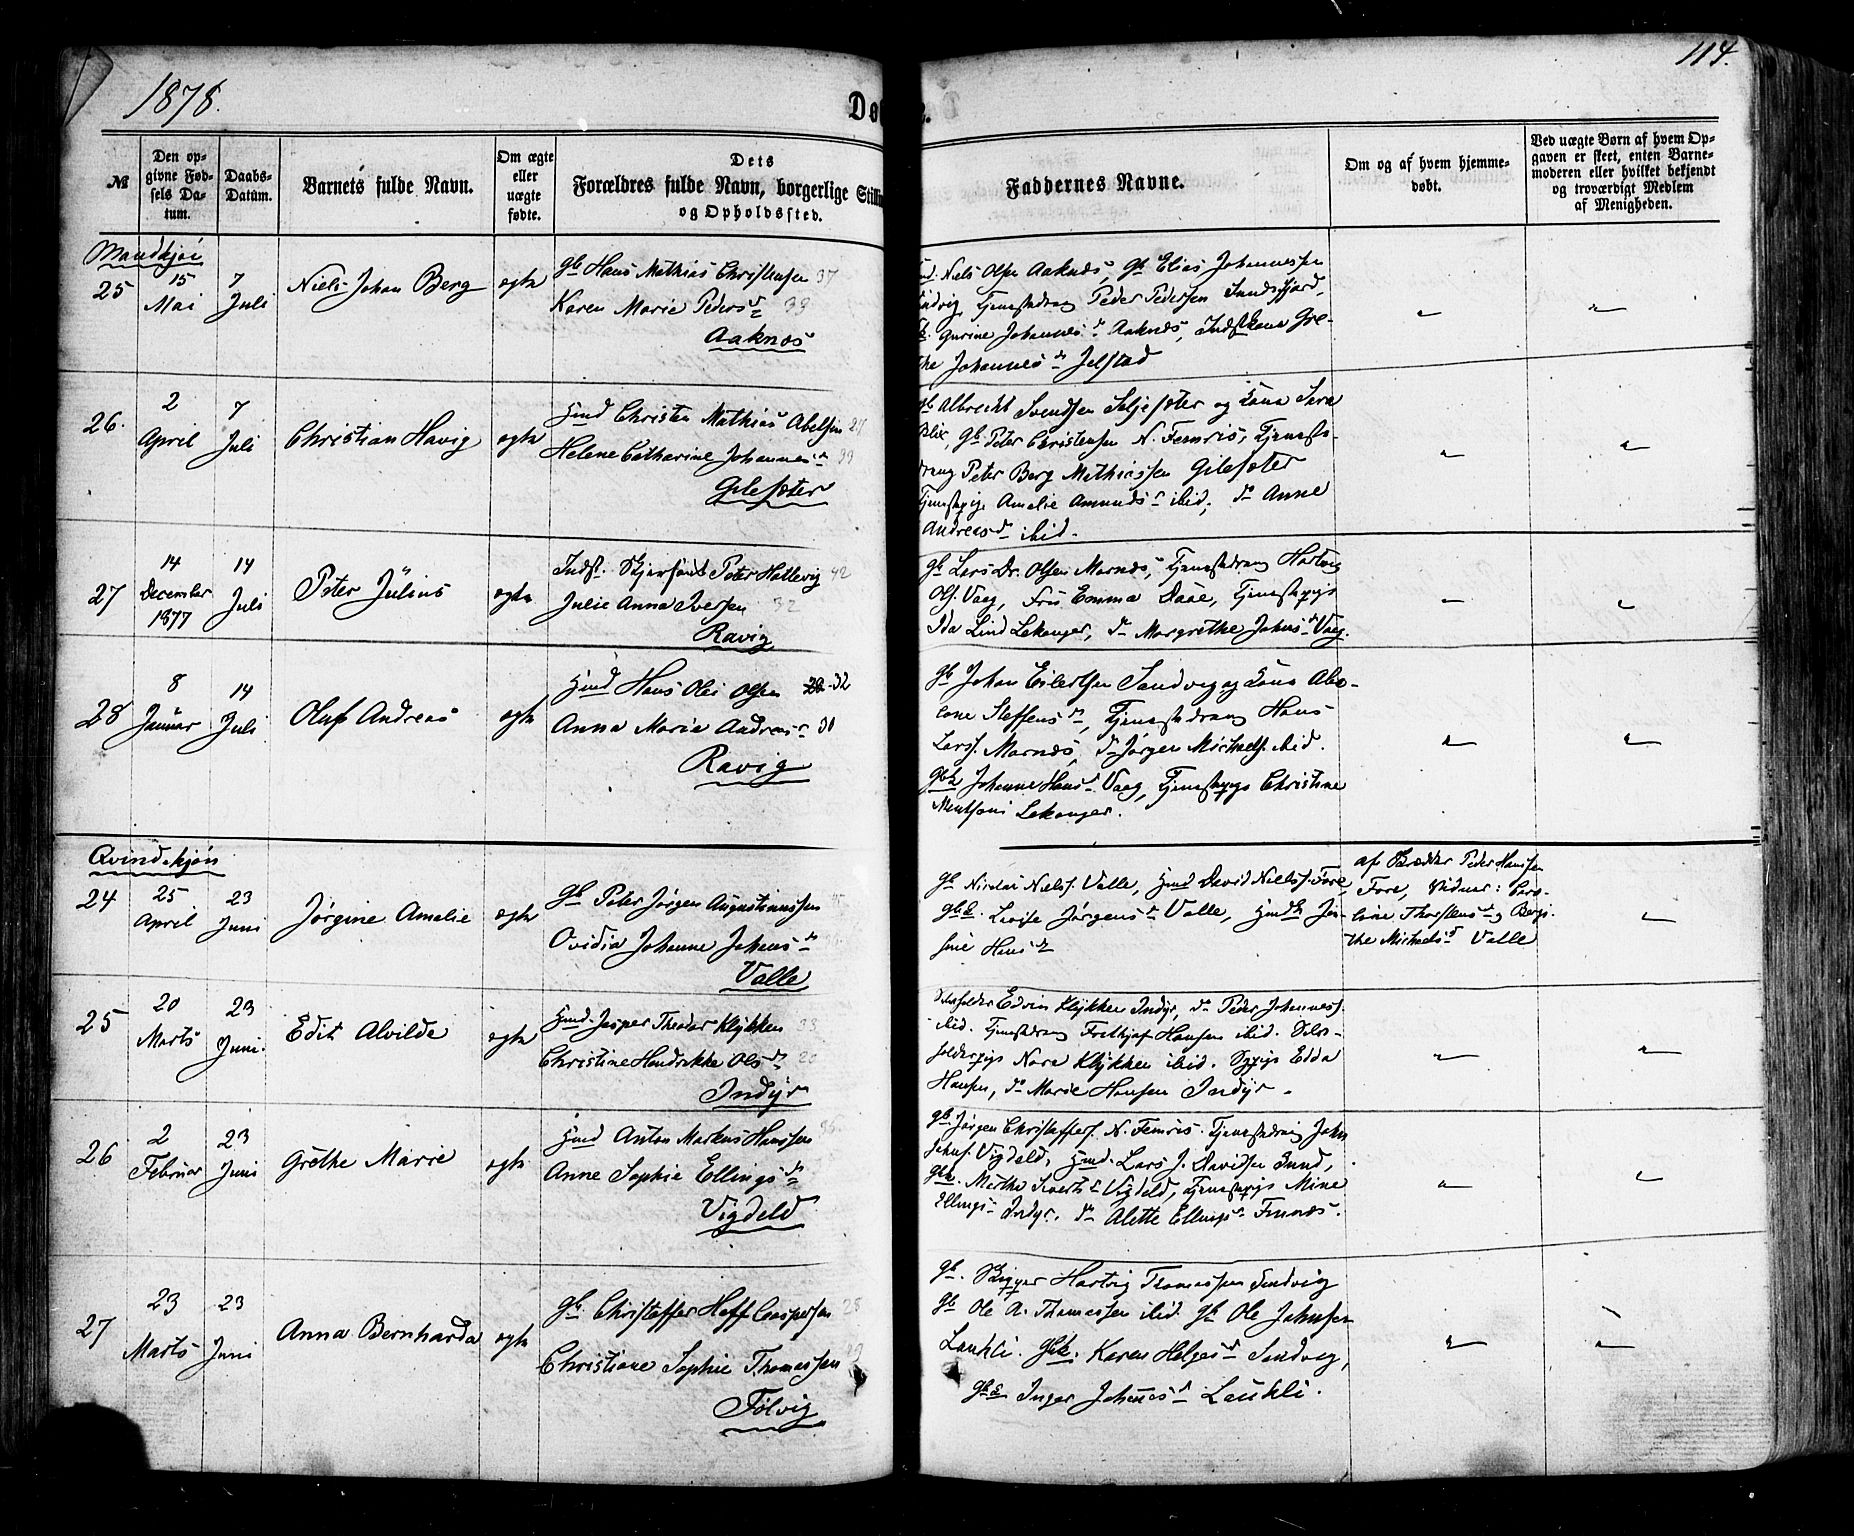 1878.
Dø
e.
114.
№
Den op-
givne Fød-
sels Da-
tum.
Daabs-
Datum.
Barnets fulde Navn.
Om ægte
eller
uægte
fødte.
Dets
Forældres fulde Navn, borgerlige Stilli
og Opholdssted.
Faddernes Navne.
Om og af hvem hjemme-
døbt.
Ved uægte Børn af hvem Op-
gaven er skeet, enten Barne-
moderen eller hvilket bekjendt
og troværdigt Medlem
af Menigheden.
Mandkjøn
25
15
Mai
7
Juli
Niels Johan Berg
ægte
Gb Hans Mathias Christensen 37
Karen Marie Pedersd 39
Aaknæs
Niels Olsen Aaknæs, Gb Elias Johannessen
Sandvig, Tjenestedreng Peder Pedersen
Gurine Johannesd Aaknæs, Indstkone Gre-
the Johannesd Jelstad
26.
2
April
7
Juli
Christian Havig
ægte
Hmd Christen Mathias Abelsen 27
Helene Cathrine Johannesd 39
Gilesæter
Gb Albrecht Svendsen Seljesæter og Kone Sara
Blix, Gb Peter Christensen N. Femris, Tjeneste-
dreng Peter Berg Mathiassen Gilesæter
Tjenestepige Amelie Amundsd ibid, do Anne
Andreasd ibid.
27
14
December
1877
14
Juli
Peter Julius
ægte
Indst. Peter Hatlevig 42
Julie Anna Iversen 32
Ravig
Gb Lars Dr. Olsen Marnæs, Tjenestedreng Hartvig
Ols. Vaag, Fru Emma Daae, Tjenestepige
Ida Lind Lekanger, do Margrethe Johnsd Vaag.
28
8
Januar
14
Juli
Oluf Andreas
ægte
Hmd Hans Olai Olsen 32
Anna Marie Andreasd 30
Ravig
Gb Johan Eilertsen Sandvig og Kone Abe-
lone Steffensd, Tjenestedreng Hans
Larss. Marnæs, do Jørgen Michaels. ibid.
Gbk Johanne Hansd Vaag, Tjenestepige Christine
Lekanger.
Qvindekjøn
24
25
April
23
Juni
Jørgine Amalie
ægte
Gb Peter Jørgen Augustinussen
Ovidia Johanne Johansd
Valle
Gb Nicolai Nielss. Valle, Hmd David Nielss. Fore,
Gbk. Lovise Jørgensd Valle, Hmdk Je-
sine Hansd
af Peder Hanssen
Fore, Vidner: Caro-
line Thorstensd og Bergi-
the Michaelsd Valle
25
20
Marts
23
Juni.
Edit Alvilde
ægte
Hmd Jesper Theodor Klykken 33
Christine Hendrikke Olsd 20
Indyr
Edvin Klykken Indyr, do Peder Johanness.
ibid. Tjenestedreng Frithjof Hansen ibid.
Nora Klykken ibid. Edda
Hansen, do Marie Hansen Indyr.
26
2
Februar
23
Juni
Grethe Marie
ægte
Hmd Anton Markus Hanssen 36.
Anne Sophie Ellingsd
Vigdeld
Gb Jørgen Christoffers. N. Femris. Tjenestedreng John
Johns. Vigdeld, Hmd. Lars J. Davidsen Sund,
Gbk. Mirthe Sivertsd Vigdeld, Tjenestepige Mine
Ellingsd Indyr. do Alette Ellingsd Finnæs.
27
23
Marts
23
Juni
Anna Bernharda
ægte
Gb. Christoffer Hoff Caspersen 28
Christiane Sophie Thomassen
Følvig
Gb. Skipper Hartvig Thomassen Sandvig
Gb Ole A. Thomassen ibid. Gb Ole Johnsen
Laukli. Gbk. Karen Helgesd Sandvig,
Gbk Inger Johnesd Laukli.